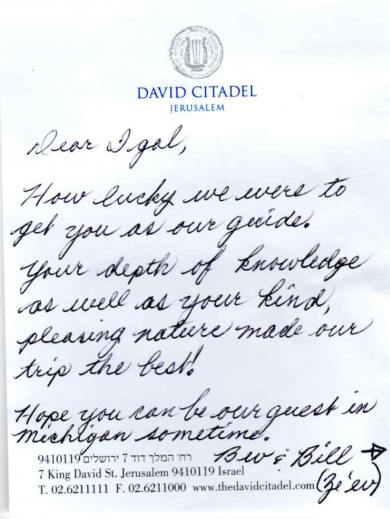 DAVID CITADEL
JERUSALEM
Dear Igal,
How lucky we were to
get you as our guide.
Your depth of knowledge
as well as your kind,
pleasing nature made our
trip the best!
Hope you can be our guest in
Michigan sometime.
Bev & Bill →
(Ze'ev)
רח' המלך דוד 7 ירושלים 9410119
7 King David St. Jerusalem 9410119 Israel
T. 02.6211111 F. 02.6211000 www.thedavidcitadel.com